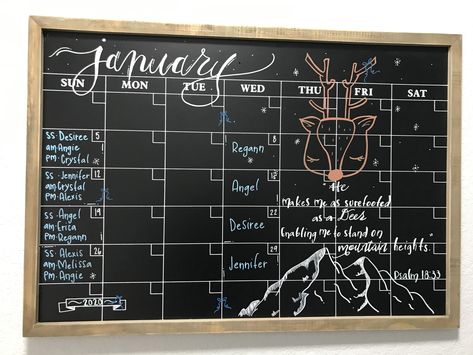 January
SUN MON TUE WED THU FRI SAT
SS-Desiree 5
am-Angie
pm-Crystal
Regann
SS-Jennifer 12
am-Crystal
pm-Alexis
Angel
SS-Angel 19
am-Erica
pm-Regann
22
Desiree
SS-Alexis 26
am-Melissa
pm-Angie
29
Jennifer
He
makes me as surefooted
as a Deer
Enabling me to stand on
mountain heights."
Psalm 18:33
2020